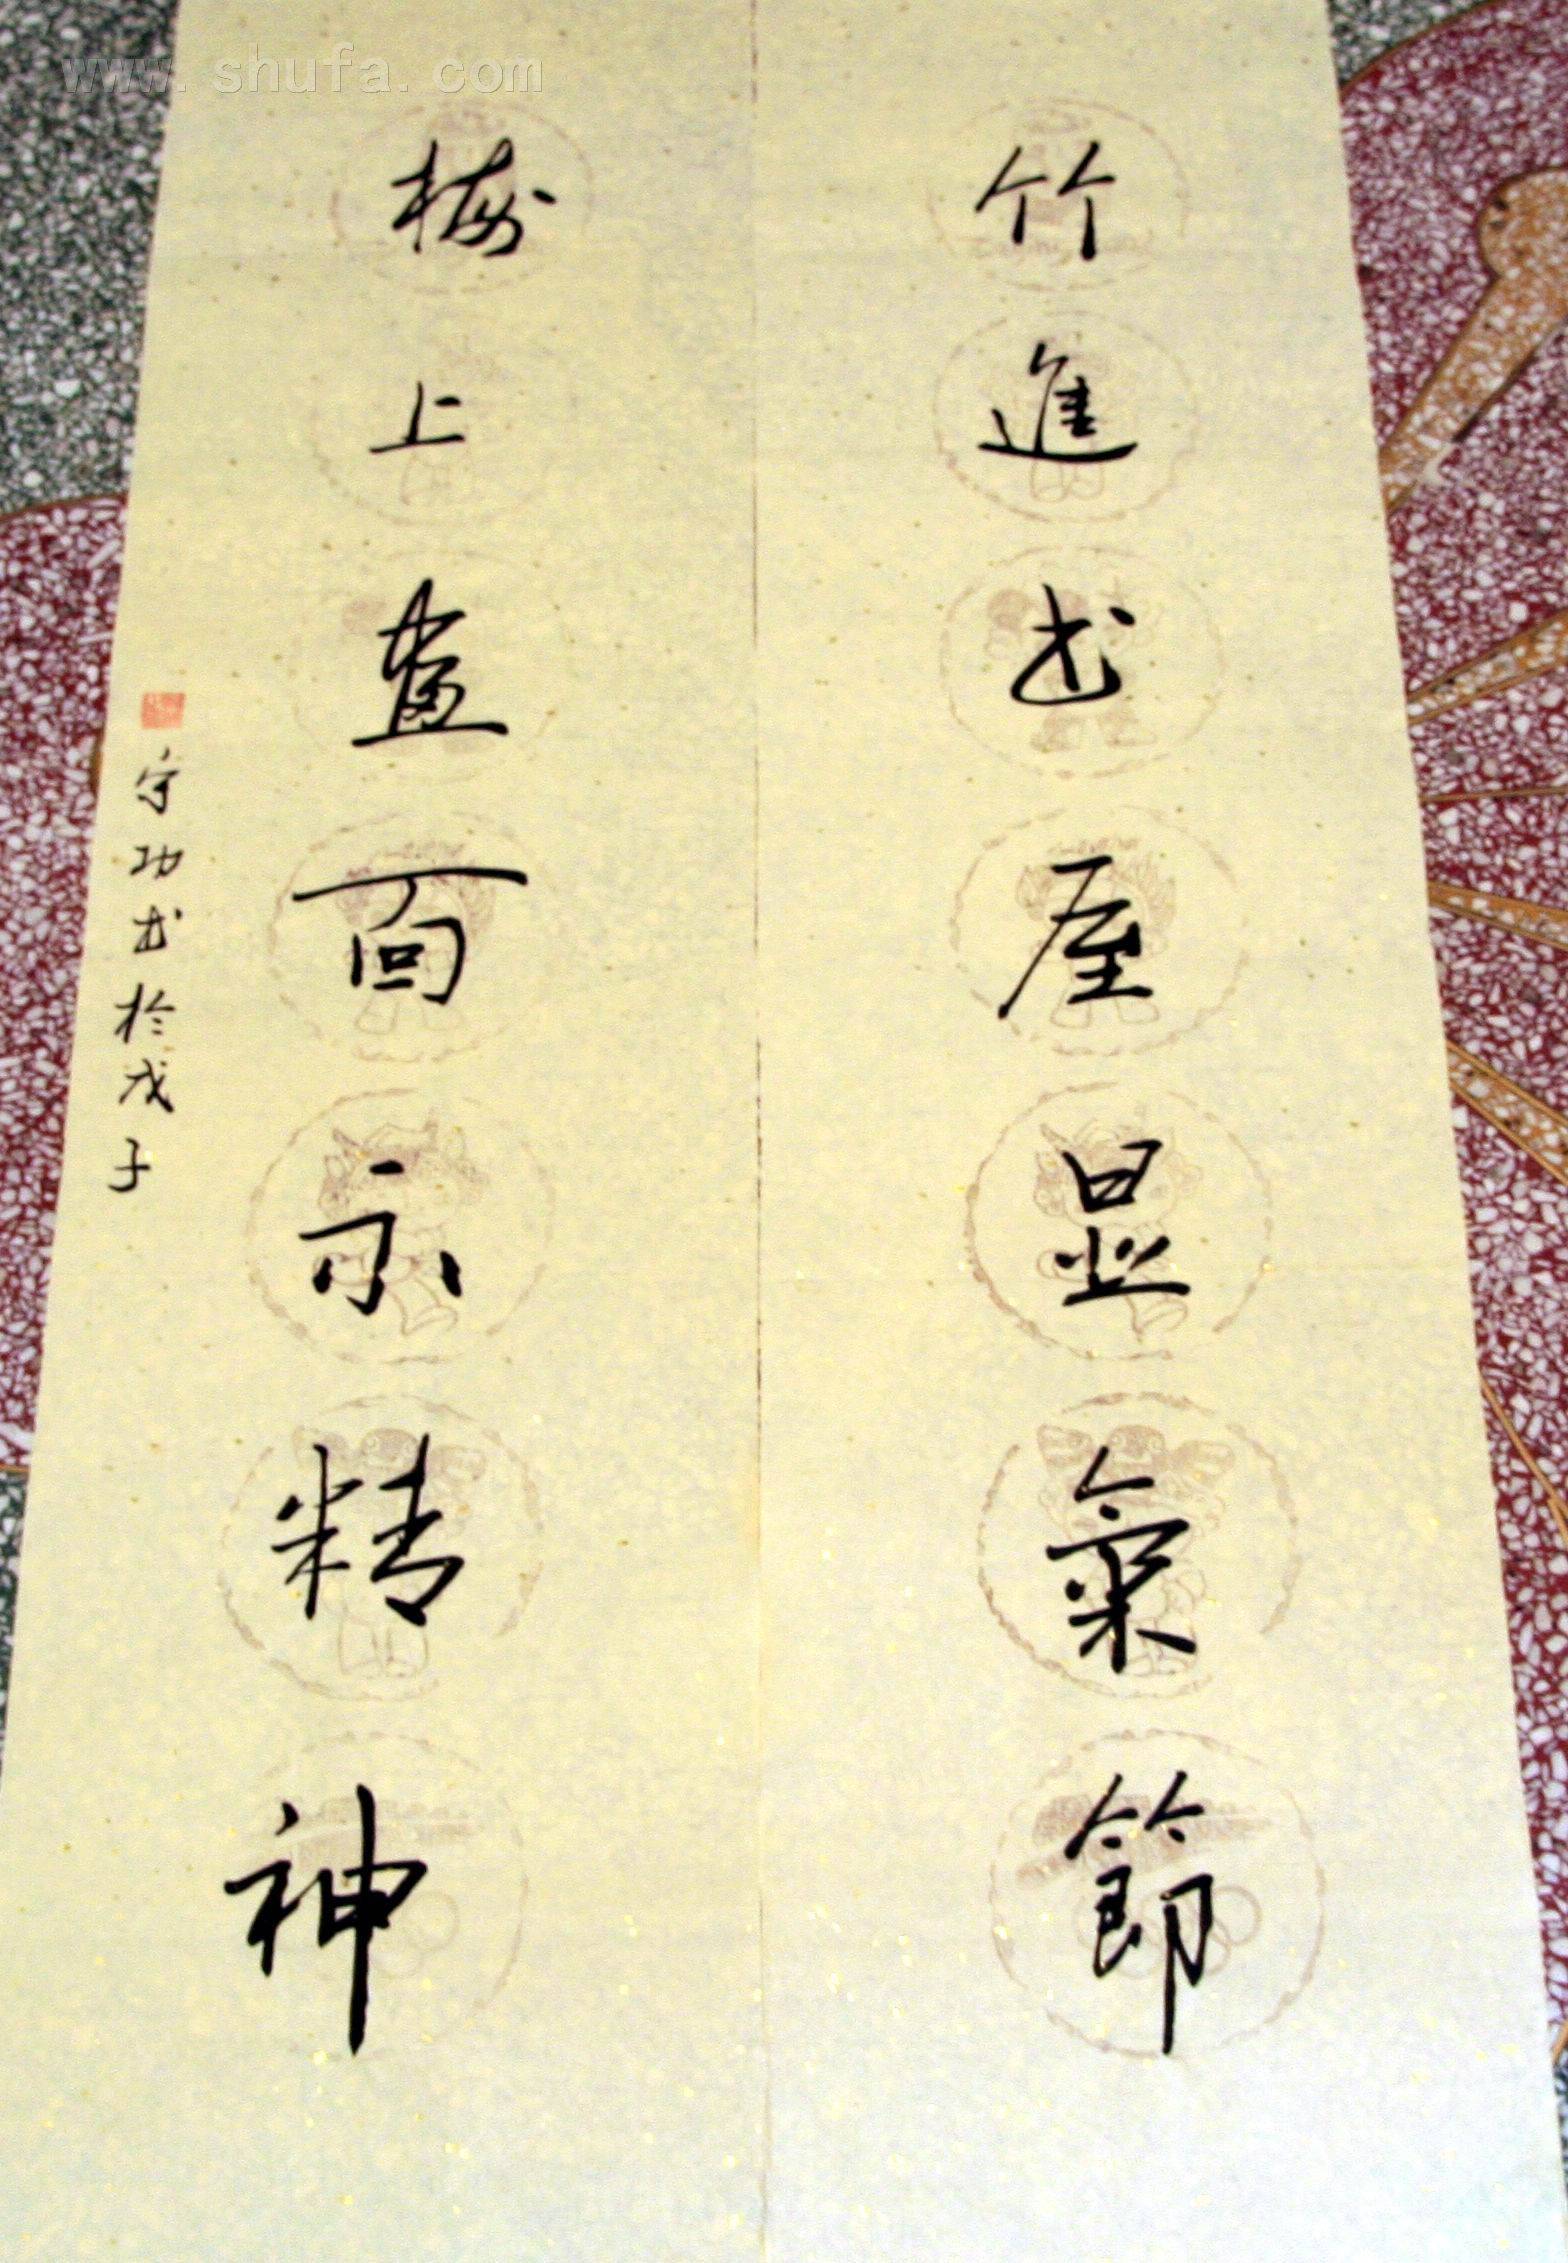 www.shufa.com
竹進书屋显氣節
梅上畫面示精神
守功书於戊子